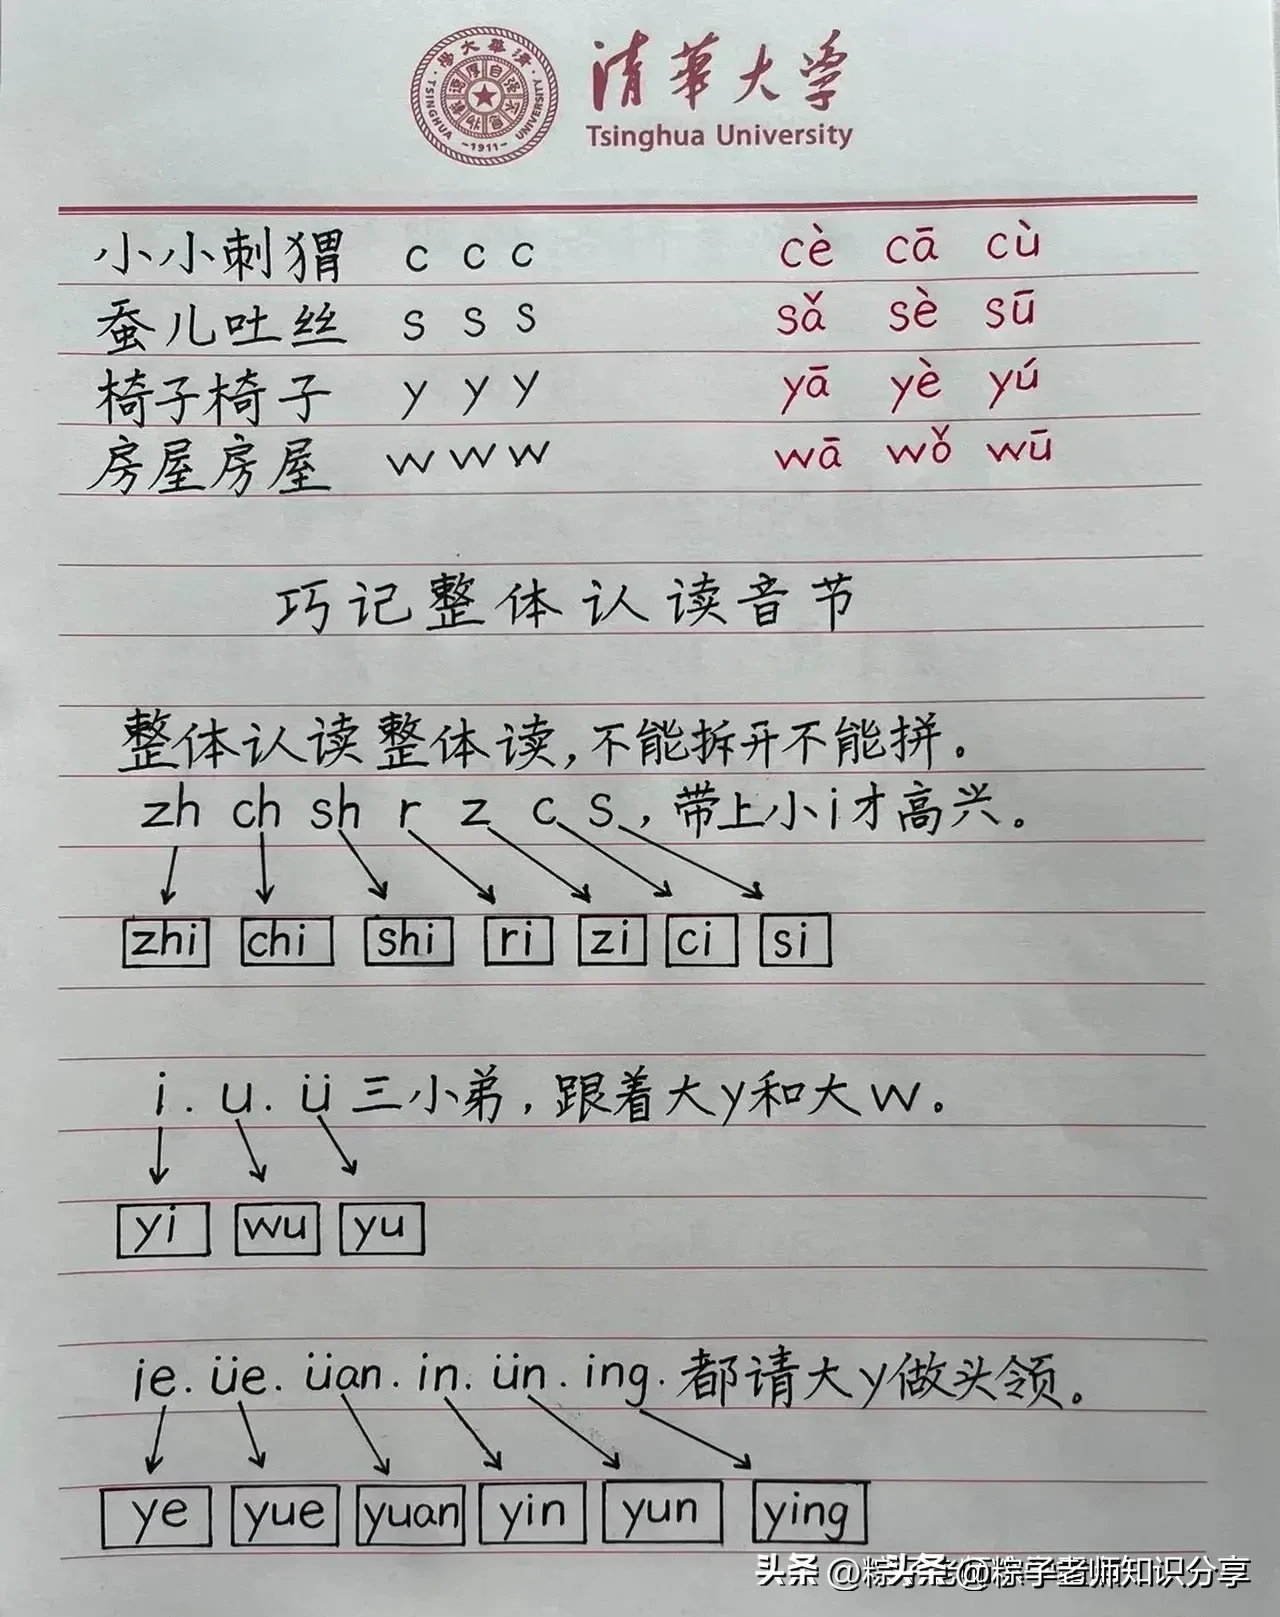 清華大学
Tsinghua University
TSINGHUA UNIVERSITY
-1911-
小小刺猬 c c c cè cā cù
蚕儿吐丝 s s s sǎ sè sū
椅子椅子 y y y yā yè yú
房屋房屋 w w w wā wǒ wū
巧记整体认读音节
整体认读整体读，不能拆开不能拼。
zh ch sh r z c s，带上小i才高兴。
zhi chi shi ri zi ci si
i. u. ü 三小弟，跟着大y和大w。
yi wu yu
ie. üe. üan. in. ün. ing. 都请大y做头领。
ye yue yuan yin yun ying
头条 @粽子老师知识分享